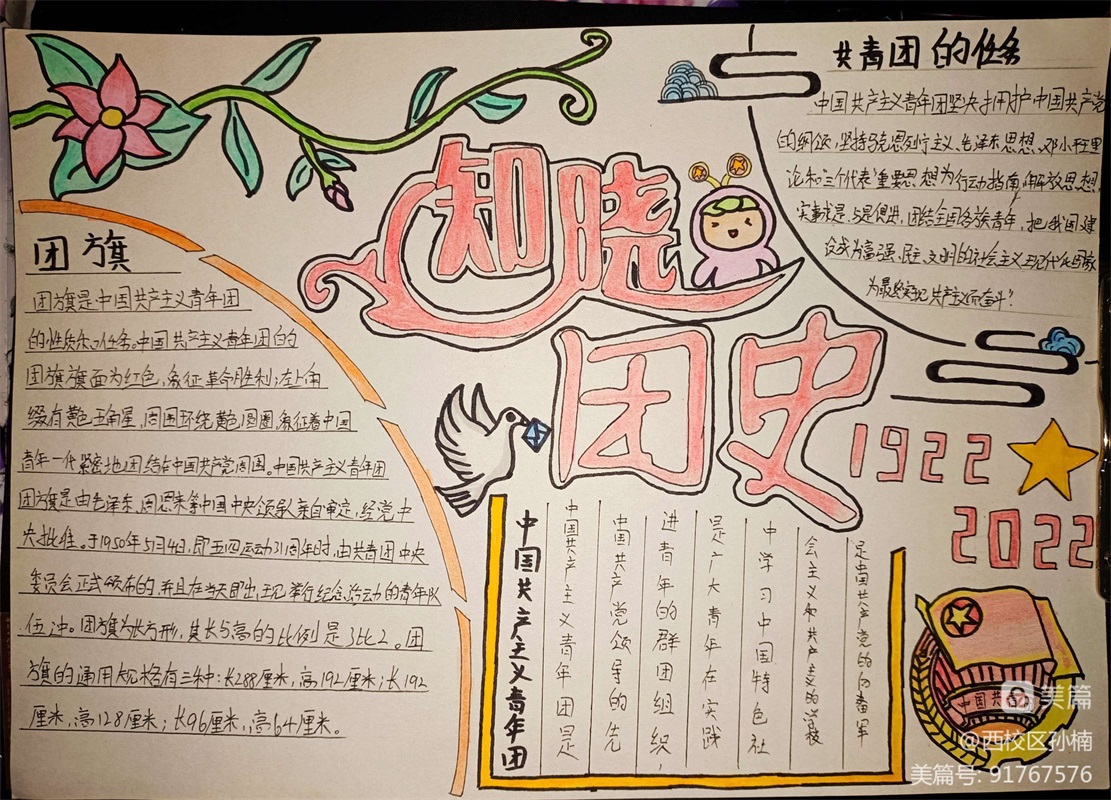 知晓
团史
1922
2022
团旗
团旗是中国共产主义青年团
的性质和任务。中国共产主义青年团的
团旗旗面为红色,象征革命胜利;左上角
缀有黄色五角星,周围环绕黄色圆圈,象征着中国
青年一代紧密地团结在中国共产党周围。中国共产主义青年团
团旗是由毛泽东、周恩来等中国中央领导亲自审定,经党中
央批准。于1950年5月4日,即五四运动31周年时,由共青团中央
委员会正式颁布的,并且在当天即出现举行纪念活动的青年队
伍中。团旗为长方形,其长与高的比例是3比2。团
旗的通用规格有三种:长288厘米,高192厘米;长192
厘米,高128厘米;长96厘米,高64厘米。
共青团的任务
中国共产主义青年团坚决拥护中国共产党
的纲领,坚持马克思列宁主义、毛泽东思想、邓小平理
论和“三个代表”重要思想为行动指南,解放思想,
实事求是,与是俱进,团结全国各族青年,把我国建
设成为富强、民主、文明的社会主义现代化国家
为最终实现共产主义而奋斗?
中国共产主义青年团
中国共产主义青年团是
中国共产党领导的先
进青年的群团组织,
是广大青年在实践
中学习中国特色社
会主义和共产主义的学校
是中国共产党的的备军
中国共
美篇
@西校区孙楠
美篇号: 91767576